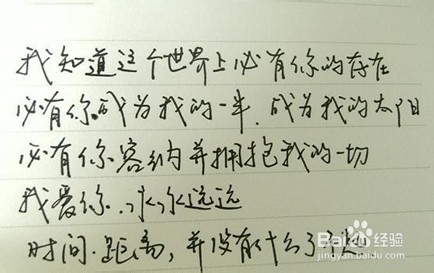 我知道这个世界上必有你的存在
必有你.成为我的一半.成为我的太阳
必有你容纳并拥抱我的一切
我爱你..永永远远
时间.距离,并没有什么了不起
Baidu经验
jingyan.baidu.com